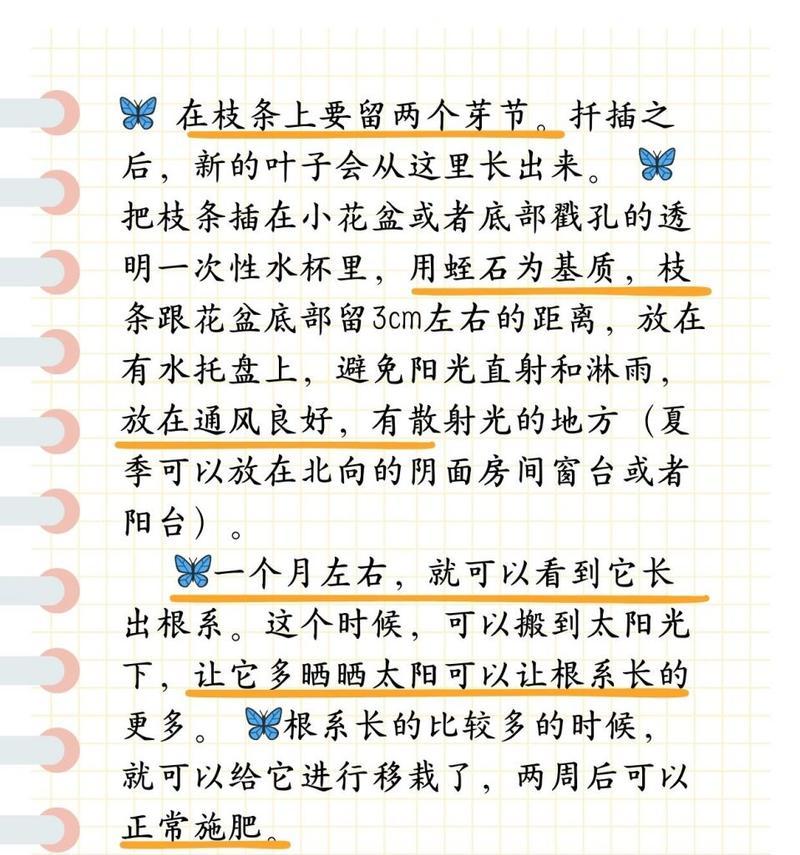 在枝条上要留两个芽节。扦插之
后，新的叶子会从这里长出来。
把枝条插在小花盆或者底部戳孔的透
明一次性水杯里，用蛭石为基质，枝
条跟花盆底部留3cm左右的距离，放在
有水托盘上，避免阳光直射和淋雨，
放在通风良好，有散射光的地方（夏
季可以放在北向的阴面房间窗台或者
阳台）。
一个月左右，就可以看到它长
出根系。这个时候，可以搬到太阳光
下，让它多晒晒太阳可以让根系长的
更多。根系长的比较多的时候，
就可以给它进行移栽了，两周后可以
正常施肥。